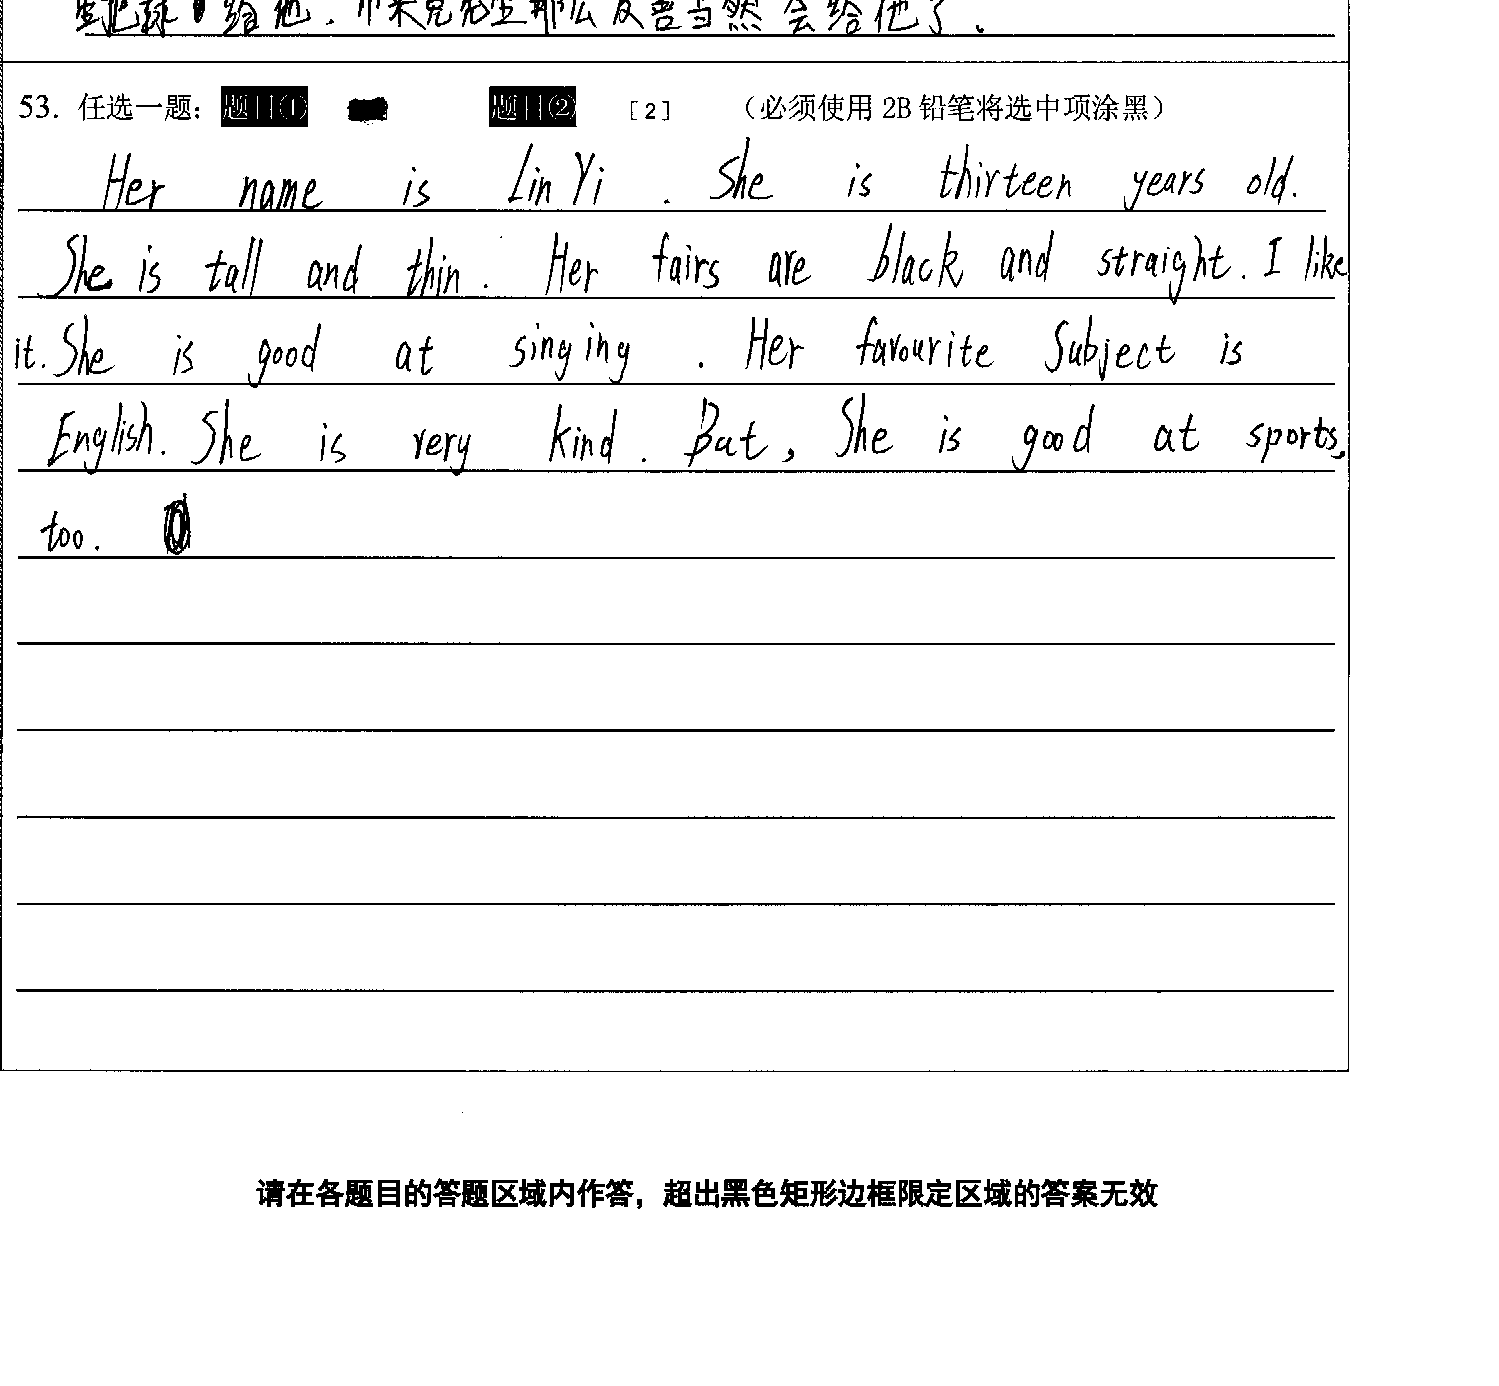 给他. 那么友善当然会给他了.
53. 任选一题: 题目① 题目② [2] (必须使用 2B 铅笔将选中项涂黑)
Her name is Lin Yi . She is thirteen years old.
She is tall and thin . Her fairs are black and straight. I like
it. She is good at singing . Her favourite Subject is
English. She is very kind . But , She is good at sports,
too.
请在各题目的答题区域内作答，超出黑色矩形边框限定区域的答案无效